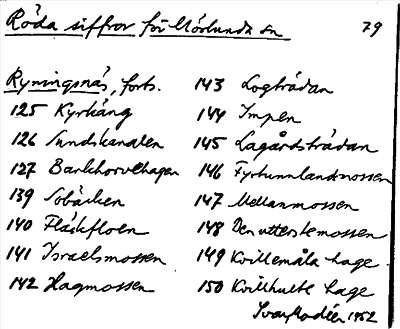 Röda siffror för Mörlunda sn
79
Ryningsnäs, forts.
125 Kyrkäng
126 Sundskanalen
127 Barkhorvehagen
139 Sobäcken
140 Fläskfloen
141 Israelsmossen
142 Hagmossen
143 Logträdan
144 Impen
145 Lagårdsträdan
146 Fyrtunnlandsmossen
147 Mellanmossen
148 Den utterstemossen
149 Kvillemåla hage
150 Kvillhulte hage
Ivar Modéer 1952